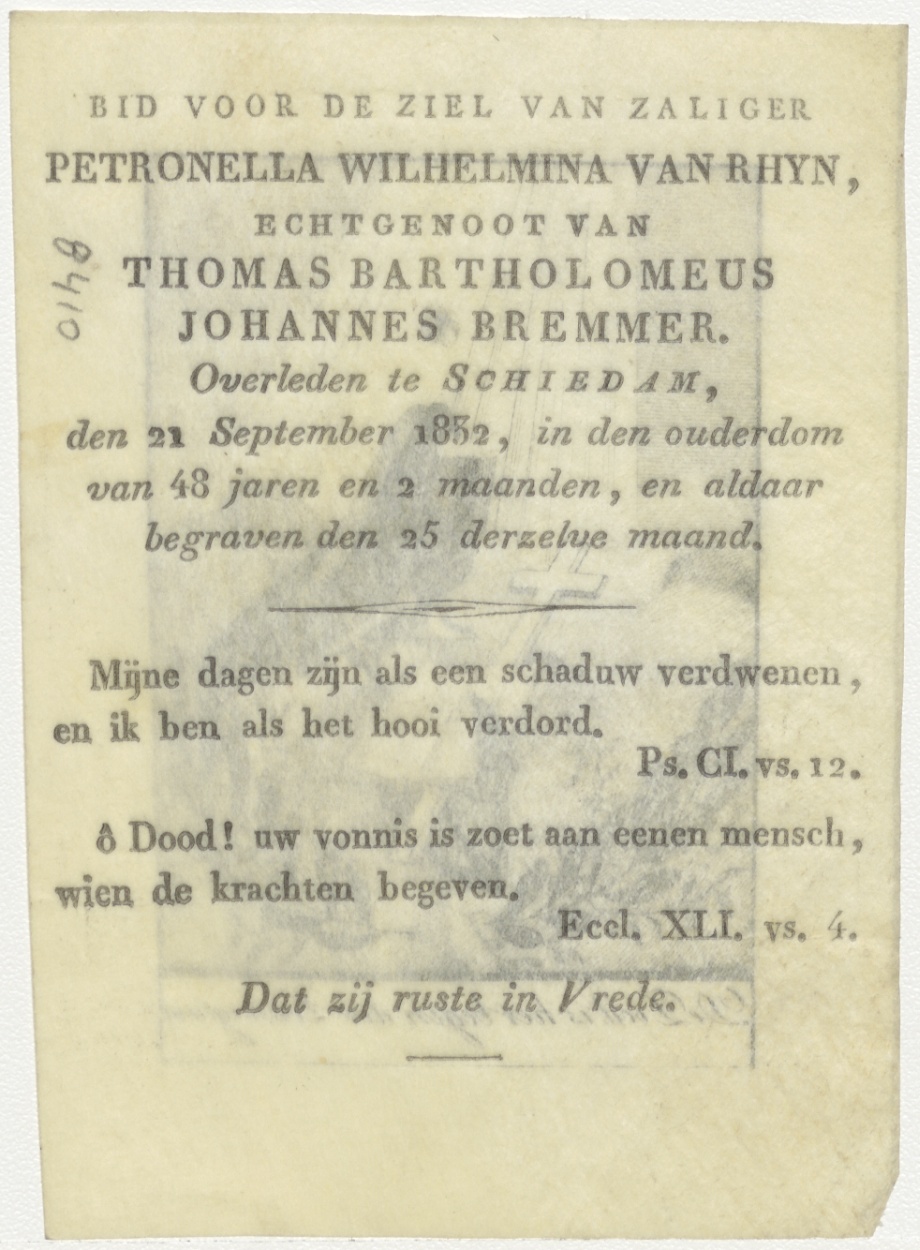 BID VOOR DE ZIEL VAN ZALIGER
PETRONELLA WILHELMINA VAN RHYN,
ECHTGENOOT VAN
THOMAS BARTHOLOMEUS
JOHANNES BREMMER.
Overleden te SCHIEDAM,
den 21 September 1832, in den ouderdom
van 48 jaren en 2 maanden, en aldaar
begraven den 25 derzelve maand.
Mijne dagen zijn als een schaduw verdwenen,
en ik ben als het hooi verdord.
Ps. CI. vs. 12.
ô Dood! uw vonnis is zoet aan eenen mensch,
wien de krachten begeven.
Eccl. XLI. vs. 4.
Dat zij ruste in Vrede.